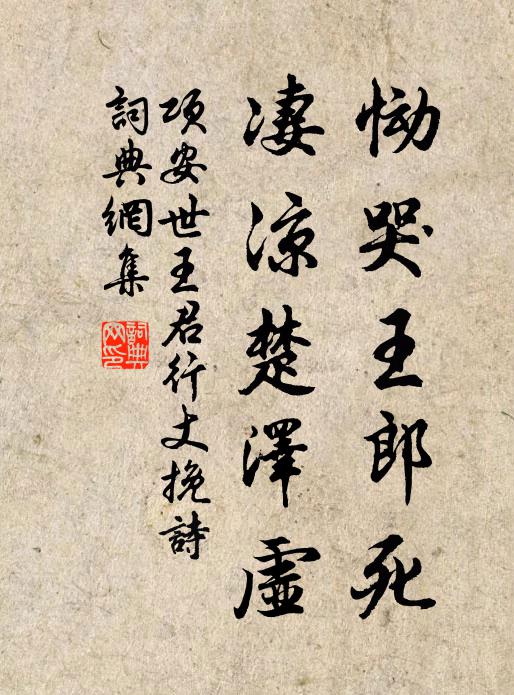 慟哭王郎死
凄涼楚澤虛
項安世王君行丈挽詩
詞典網集
詞典
网印